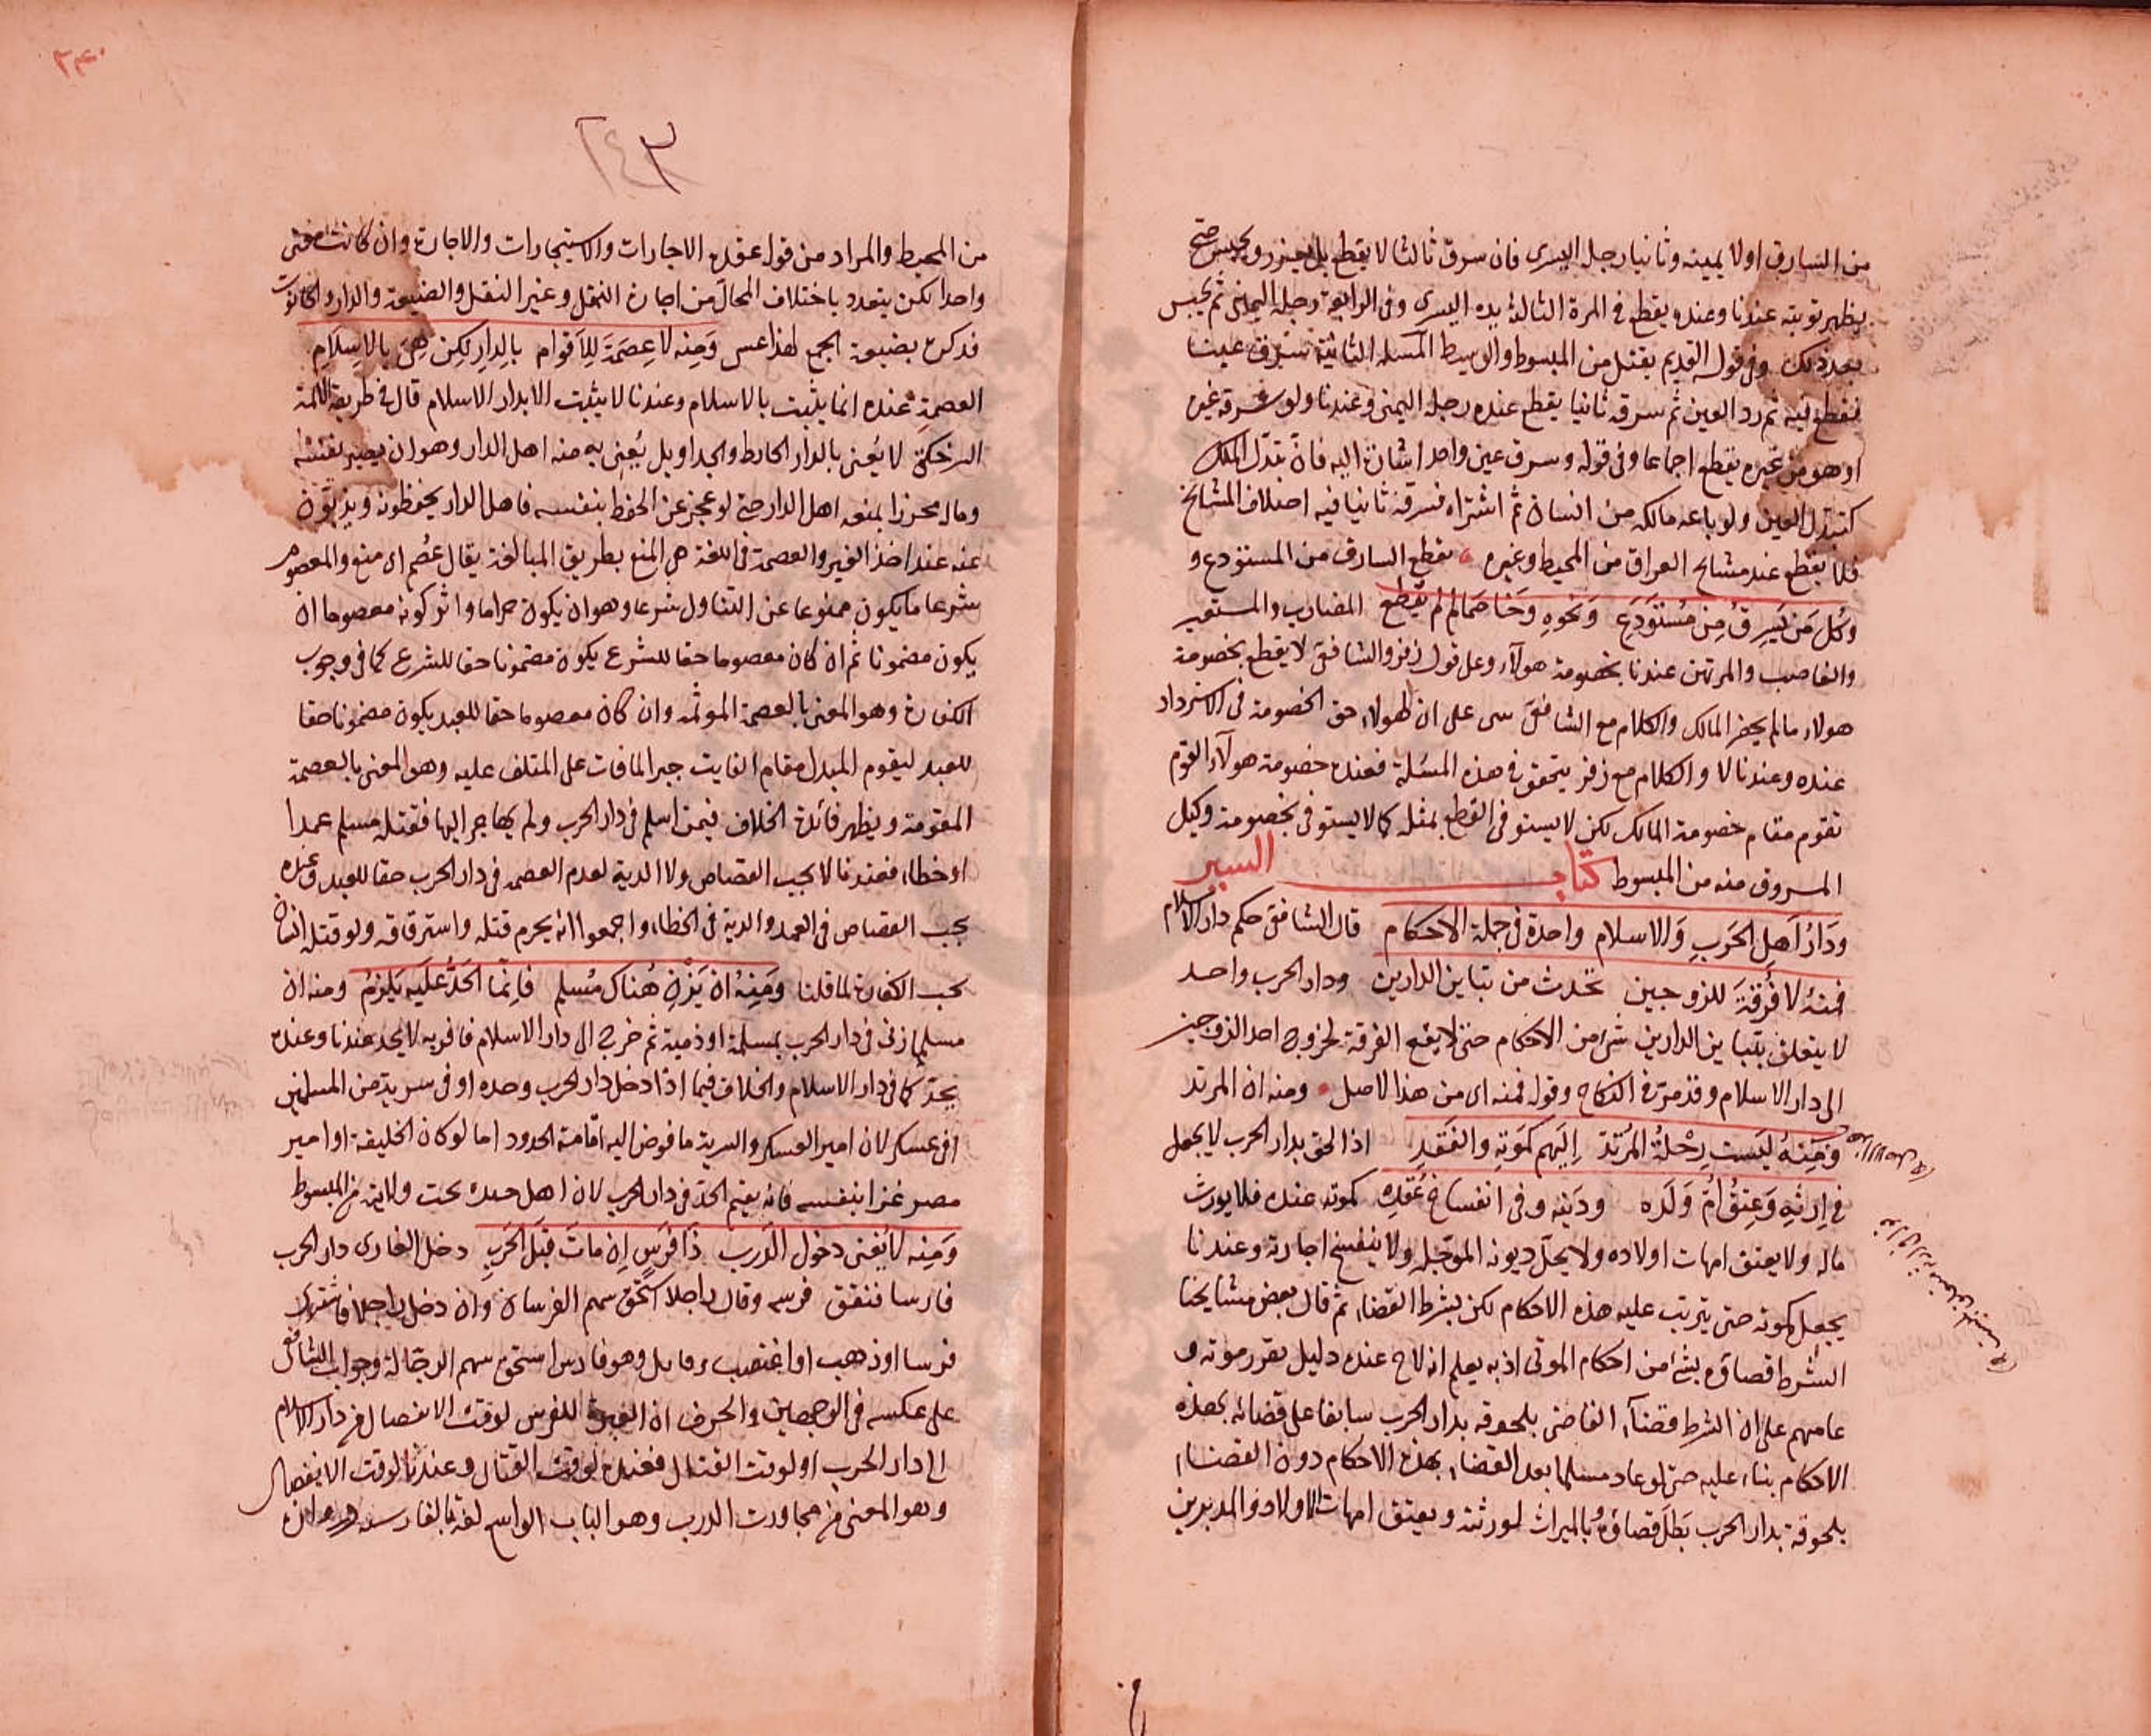 من السارق اولا يمينه وثانيا رجله اليسرى فان سرق ثالثا لا يقطع بل يعزر ويحبس حتى
يظهر توبته عندنا وعنده يقطع في المرة الثالثة يده اليسرى وفي الرابعة رجله اليمنى ثم يحبس
بعد ذلك وفي قوله القديم يقتل من المبسوط والوسيط المسئلة الثانية سرق عينا
فقطع فيه ثم رد العين ثم سرقه ثانيا يقطع عنده رجله اليمنى وعندنا ولو سرقه غيره
او هو من غيره يقطع اجماعا وفي قوله وسرق عين واحد اشارة اليه فان تبدل الملك
كتبدل العين ولو باعه مالكه من انسان ثم اشتراه فسرقه ثانيا فيه اختلاف المشايخ
فلا يقطع عند مشايخ العراق من المحيط وغيره يقطع السارق من المستودع و
وكل من يسرق من مستودع ونحوه وخاصما لم يقطع المضارب والمستعير
والغاصب والمرتهن عندنا بخصومة هولاء وعلى قول زفر والشافعي لا يقطع بخصومة
هولاء ما لم يحضر المالك والكلام مع الشافعي على ان لهولاء حق الخصومة في الاسترداد
عنده وعندنا لا والكلام مع زفر يتحقق في هذه المسئلة فعنده خصومة هولاء القوم
تقوم مقام خصومة المالك لكن لا يستوفى القطع بمثله كما لا يستوفى بخصومة وكيل
المسروق منه من المبسوط كتاب السير
ودار اهل الحرب والاسلام واحدة في جملة الاحكام قال الشافعي حكم دار الاسلام
فمنه لا فرقة للزوجين تحدث من تباين الدارين ودار الحرب واحد
لا يتعلق بتباين الدارين شئ من الاحكام حتى لا يقع الفرقة لخروج احد الزوجين
الى دار الاسلام وقد مر في النكاح وقوله فمنه اى من هذا الاصل ومنه ان المرتد
ومنه ليست رحلة المرتد اليهم كموته والفقد اذا لحق بدار الحرب لا يجعل
في ارثه وعتق ام ولده ودينه وفي انفساخ عقده كموته عنده فلا يورث
ماله ولا يعتق امهات اولاده ولا يحل ديونه الموجله ولا ينفسخ اجارته وعندنا
يجعل كموته حتى يترتب عليه هذه الاحكام لكن بشرط القضاء ثم قال بعض مشايخنا
الشرط قضاؤه بشئ من احكام الموتى اذ به يعلم انه لاح عنده دليل تقرر موته و
عامهم على ان الشرط قضاء القاضي بلحوقه بدار الحرب سابقا على قضائه بهذه
الاحكام بناء عليه حتى لو عاد مسلما بعد القضاء بهذه الاحكام دون القضاء
بلحوقه بدار الحرب بطل قضاؤه بالميراث لورثته ويعتق امهات الاولاد والمدبرين
٢٤٣
من المحيط والمراد من قوله عقده الاجارات والاستيجارات والاجارة وان كانت
واحدا لكن يتعدد باختلاف المحال من اجارة النقل وغير النقل والضيعة والدار والحانوت
فذكره بصيغة الجمع لهذا ومنه لا عصمة للاقوام بالدار لكن هى بالاسلام
العصمة عنده انما يثبت بالاسلام وعندنا لا يثبت الا بدار الاسلام قال في طريقة الائمة
لا يعنى بالدار الحائط والجدار بل يعنى به منعة اهل الدار وهو ان يصير بنفسه
وماله محرزا بمنعة اهل الدار حتى لو عجز عن الحفظ بنفسه فاهل الدار يحفظونه ويذبون
عنه عند اخذ الغير والعصمة في اللغة هي المنع بطريق المبالغة يقال عصم اى منع والمعصوم
شرعا ما يكون ممنوعا عن التناول شرعا وهو ان يكون حراما واثر كونه معصوما ان
يكون مضمونا ثم ان كان معصوما حقا للشرع يكون مضمونا حقا للشرع كما في وجوب
الكفارة وهو المعنى بالعصمة الموثمة وان كان معصوما حقا للعبد يكون مضمونا حقا
للعبد ليقوم البدل مقام الفايت جبرا لما فات على المتلف عليه وهو المعنى بالعصمة
المقومة ويظهر فائدة الخلاف فيمن اسلم في دار الحرب ولم يهاجر الينا فقتله مسلم عمدا
او خطاء فعندنا لا يجب القصاص ولا الدية لعدم العصمة في دار الحرب حقا للعبد وعنده
يجب القصاص في العمد والدية في الخطاء واجمعوا انه يحرم قتله واسترقاقه ولو قتله انسان
يجب الكفارة لما قلنا ومنه ان يزن هناك مسلم فانما الحد عليه يلزم ومنه ان
مسلما زنى في دار الحرب بمسلمة او ذمية ثم خرج الى دار الاسلام فاقر به لا يحد عندنا وعنده
يحد كما في دار الاسلام والخلاف فيما اذا دخل دار الحرب وحده او في سرية من المسلمين
او في عسكر لان امير العسكر والسرية ما فوض اليه اقامة الحدود اما لو كان الخليفة او امير
مصر غزا بنفسه فانه يقيم الحد في دار الحرب لان اهل تحت ولايته من المبسوط
ومنه لا يغنى دخول الدرب ذا فرس ان مات قبل الحرب دخل الغازى دار الحرب
فارسا فنفق فرسه وقاتل راجلا استحق سهم الفرسان وان دخل راجلا فاشترى
فرسا او ذهب او اغتصب وقاتل وهو فارس استحق سهم الرجالة وجواب الشافعى
على عكسه في الوجهين والحرف ان العبرة للفرس لوقت الانفصال من دار الاسلام
الى دار الحرب او لوقت القتال فعنده لوقت القتال وعندنا لوقت الانفصال
وهو المعنى من مجاوزة الدرب وهو الباب الواسع لغة